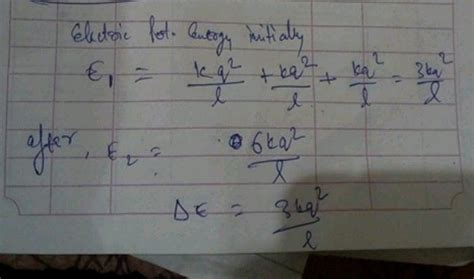 Electric Pot. energy initially
ε₁ = kq²/l + kq²/l + kq²/l = 3kq²/l
after, ε₂ = 6kq²/l
Δε = 3kq²/l